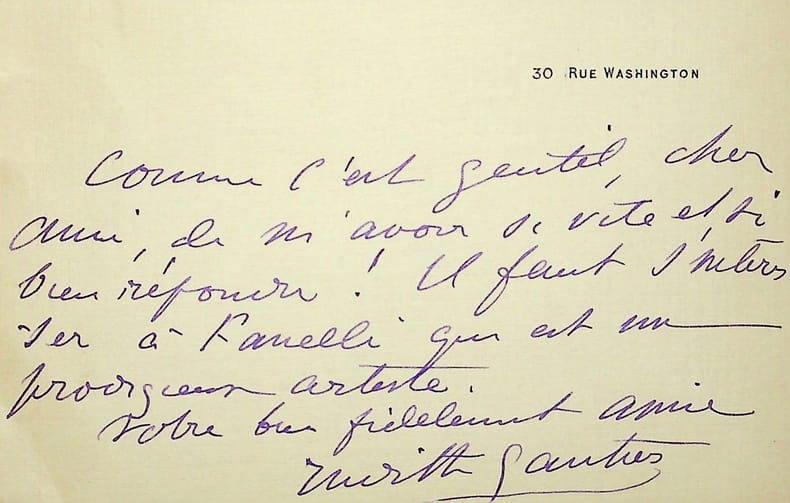 30 RUE WASHINGTON
Comme c'est gentil, cher
ami, de m'avoir si vite et si
bien répondu ! Il faut s'intéres
ser à Fanelli qui est un
prodigieux artiste.
Votre bien fidèlement amie
Judith Gautier